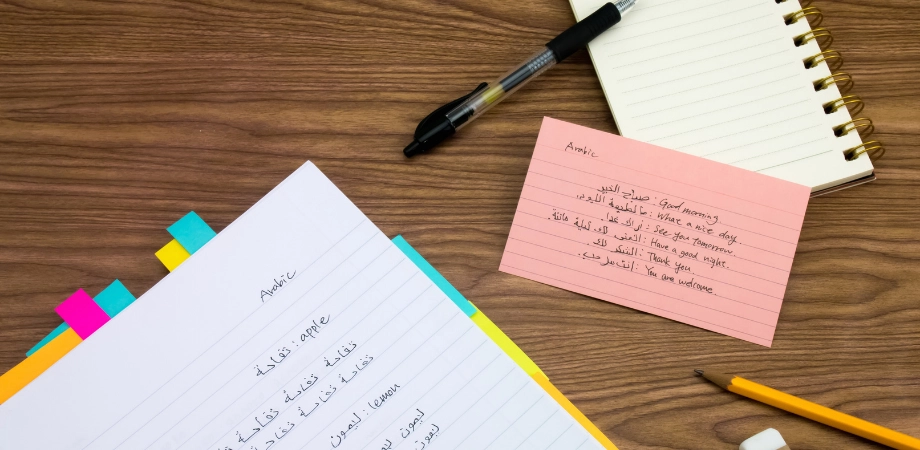 Arabic
صباح الخير : Good morning.
: What a nice day.
أراك غدا : See you tomorrow.
أتمنى لك ليلة هانئة : Have a good night.
الشكر لك : Thank you.
أنت مرحب : You are welcome.
Arabic
تفاحة : apple
تفاحة تفاحة تفاحة
تفاحة تفاحة تفاحة
ليمون : lemon
ليمون
ليمون